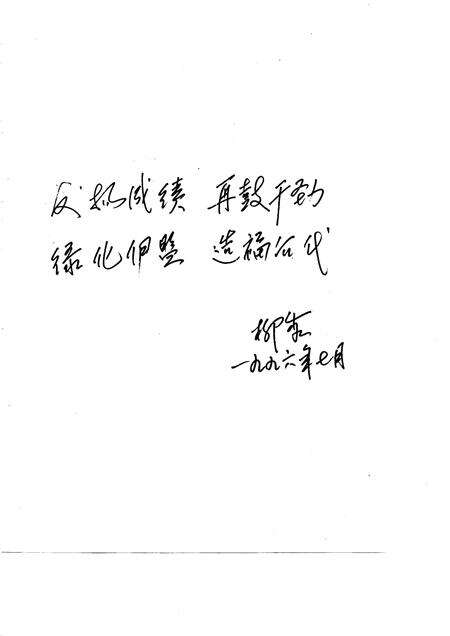 发扬成绩 再鼓干劲
绿化伊盟 造福后代
柳秀
一九九六年七月